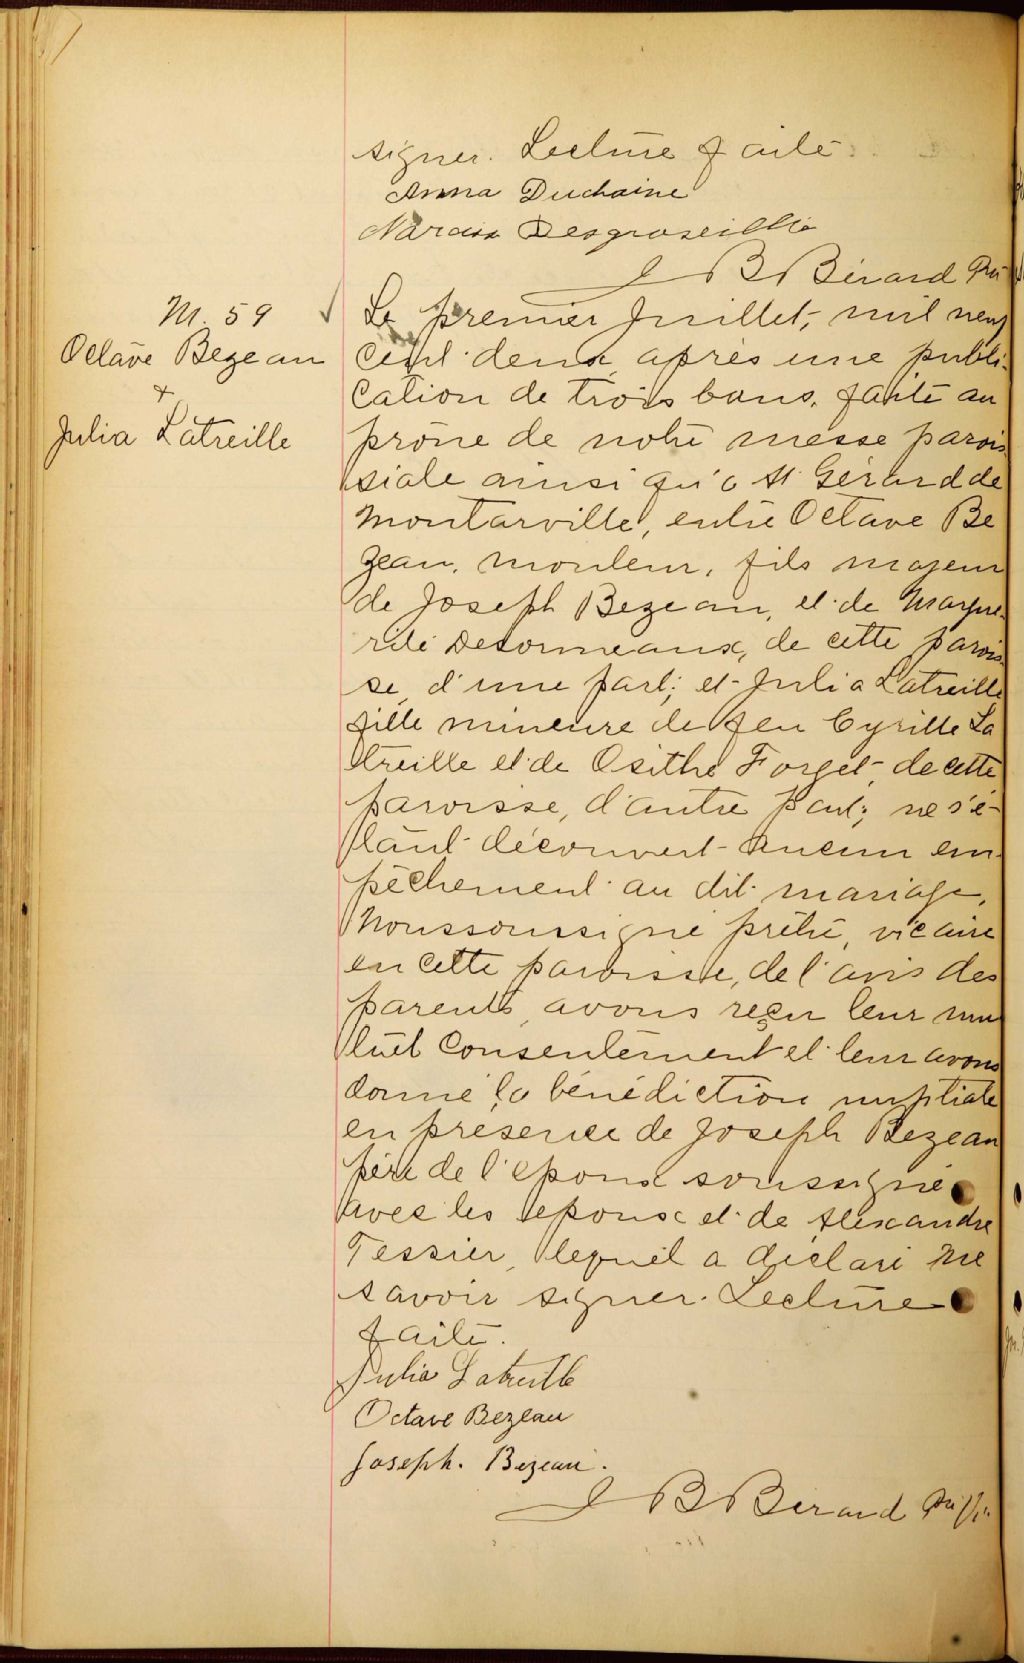 signer. Lecture faite.
Anna Duchaine
Narciss Desgroseillie
J B Bérard Ptr
M. 59
Octave Bezeau
+
Julia Latreille
Le premier Juillet, mil neuf
cent deux, après une publi-
cation de trois bans, faite au
prône de notre messe parois-
siale ainsi qu'à St Gérard de
Montarville, entre Octave Be
zeau, mouleur, fils majeur
de Joseph Bezeau, et de Margue-
rite Desormeaux, de cette parois-
se, d'une part; et Julia Latreille
fille mineure de feu Cyrille La
treille et de Osithe Forget, de cette
paroisse, d'autre part; ne s'é-
tant découvert aucun em-
pêchement au dit mariage,
Nous soussigné prêtre, vicaire
en cette paroisse, de l'avis des
parents, avons reçu leur mu
tuel consentement et leur avons
donné la bénédiction nuptiale
en présence de Joseph Bezeau
père de l'époux soussigné
avec les époux et de Alexandre
Tessier, lequel a déclaré ne
savoir signer. Lecture
faite.
Julia Latreille
Octave Bezeau
Joseph. Bezeau.
J B Bérard Ptr